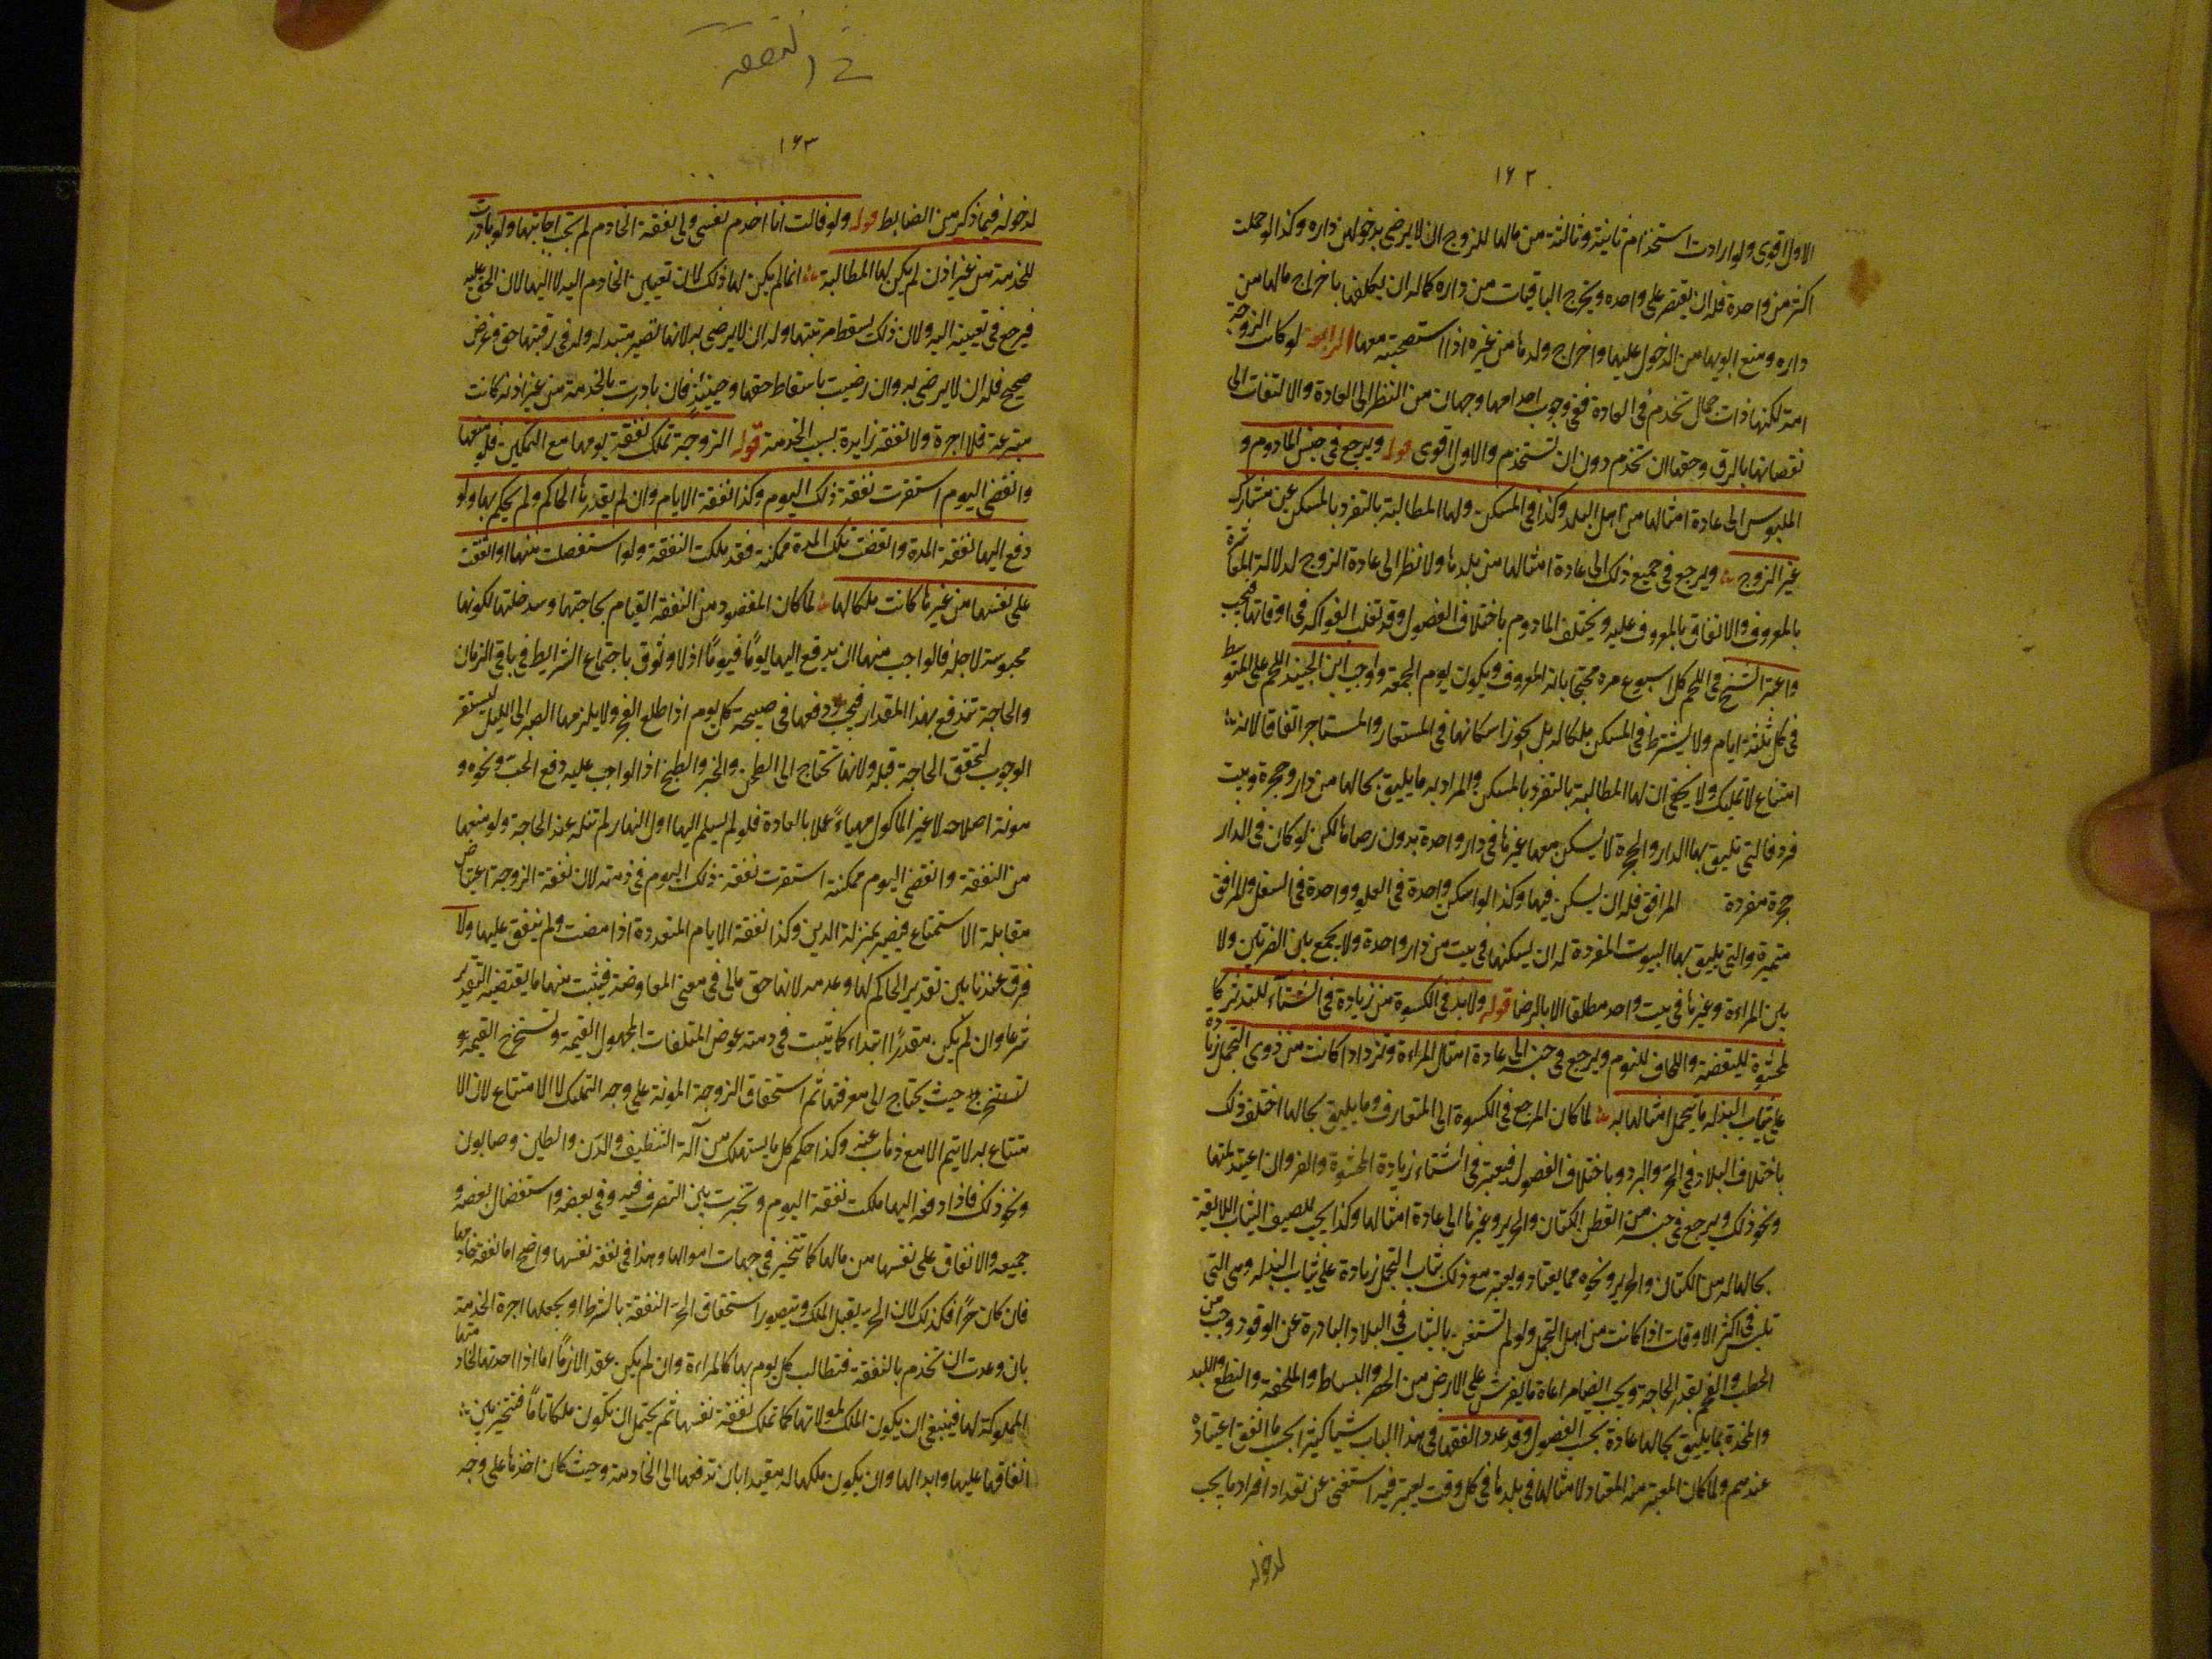 ١٦٢
الاول اقوى ولو ارادت استخدام ثانية وثالثة من مالها للزوج ان لا يرضى بدخولهن داره وكذا لو حملت
اكثر من واحدة فله ان يقتصر على واحده ويخرج الباقيات من داره كما له ان يكلفها باخراج مالها من
داره ومنع ابويها من الدخول عليها واخراج ولدها من غيره اذا استصحبته معها الرابع لو كانت الزوجة
امة لكنها ذات جمال تخدم في العادة ففي وجوب اخدامها وجهان من النظر الى العادة والالتفات الى
نقصانها بالرق وحقها ان تخدم دون ان تستخدم والاول اقوى قوله ويرجع في جنس المادوم و
الملبوس الى عادة امثالها من اهل البلد وكذا في المسكن ولها المطالبة بالتفرد بالمسكن عن مشارك
غير الزوج ويرجع في جميع ذلك الى عادة امثالها من بلدها ولا نظر الى عادة الزوج لدلالة المعاشرة
بالمعروف والانفاق بالمعروف عليه ويختلف المادوم باختلاف الفصول وقد تغلب الفواكه في اوقاتها فتجب
واعتبر الشيخ في اللحم كل اسبوع مره محتجا بانه المعروف ويكون يوم الجمعة واوجب ابن الجنيد اللحم على المتوسط
في كل ثلثة ايام ولا يشترط في المسكن ملكا له بل يجوز اسكانها في المستعار والمستاجر اتفاقا لانه
امتاع لا تمليك ولا يخفى ان لها المطالبة بالتفرد بالمسكن والمراد به ما يليق بحالها من دار وحجرة وبيت
فرد فالتي تليق بها الدار والحجرة لا يسكن معها غيرها في دار واحدة بدون رضاها لكن لو كان في الدار
حجرة مفردة المرافق فله ان يسكن فيها وكذا لو اسكن واحدة في العلو وواحدة في السفل والمرافق
متميزة والتي يليق بها البيوت المفردة له ان يسكنها في بيت من دار واحدة ولا يجمع بين الضرتين ولا
بين المراءة وغيرها في بيت واحد مطلقا الا بالرضا قوله ولا بد في الكسوة من زيادة في الشتآء للتدثر كا
لمحشوة لليقضة واللحاف للنوم ويرجع في جنسه الى عادة امثال المراءة وتزداد اذا كانت من ذوي التجمل زيادة
على ثياب البذله ما يتجمل امثالها به لما كان المرجع في الكسوة الى المتعارف وما يليق بحالها اختلف ذلك
باختلاف البلاد في الحر والبرد وباختلاف الفصول فيعتبر في الشتاء زيادة المحشوة والفرو ان اعتيد لمثلها
ونحو ذلك ويرجع في جنسه من القطن والكتان والحرير وغيرها الى عادة امثالها وكذا يجب للصيف الثياب اللائقة
بحالها له من الكتان والحرير ونحوه مما يعتاد ويعتبر مع ذلك ثياب التجمل زيادة على ثياب البذله وهي التي
تلبس في اكثر الاوقات اذا كانت من اهل التجمل ولو لم تستغن بالثياب في البلاد الباردة عن الوقود وجب من
الحطب والفحم بقدر الحاجة ويجب ايضا مراعاة ما يفرش على الارض من الحصر والبساط والملحفة والنطع واللبد
والمخدة بما يليق بحالها عادة بحسب الفصول وقد عدد الفقهاء في هذا الباب شيئا كثيرا بحسب ما اتفق اعتياده
عندهم ولما كان المعتبر منه المعتاد لامثالها في بلدها في كل وقت يعتبر فيه استغنى عن تعداد افراد ما يجب
لدخوله
في النفقه
١٦٣
لدخوله فيما ذكر من الضابط قوله ولو قالت انا اخدم نفسي ولي نفقة الخادم لم تجب اجابتها ولو بادرت
للخدمة من غير اذن لم يكن لها المطالبة انما لم يكن لها ذلك لان تعيين الخادم اليه لا اليها لان الحق عليه
فيرجع في تعيينه اليه ولان ذلك يسقط مرتبتها وله ان لا يرضى به لانها تصير مبتذله وله في رفعتها حق وغرض
صحيح فله ان لا يرضى به وان رضيت باسقاط حقها وحينئذ فان بادرت بالخدمة من غير اذنه كانت
متبرعة فلا اجرة ولا نفقة زايدة بسبب الخدمة قوله الزوجة تملك نفقة يومها مع التمكين فلو منعها
وانقضى اليوم استقرت نفقة ذلك اليوم وكذا نفقة الايام وان لم يقدرها الحاكم ولم يحكم بها ولو
دفع اليها نفقة المدة وانقضت تلك المدة ممكنة فقد ملكت النفقة ولو استفضلت منها او انفقت
على نفسها من غيرها كانت ملكا لها لما كان المقصود من النفقة القيام بحاجتها وسد خلتها لكونها
محبوسة لاجله فالواجب منها ان يدفع اليها يومًا فيومًا اذ لا وثوق باجتماع الشرايط في باقي الزمان
والحاجة تندفع بهذا المقدار فيجب دفعها في صبيحة كل يوم اذا طلع الفجر ولا يلزمها الصبر الى الليل ليستقر
الوجوب لتحقق الحاجة قبله ولانها تحتاج الى الطحن والخبز والطبخ اذ الواجب عليه دفع الحب ونحوه و
مونة اصلاحه لا غير الماكول مهياءً عملا بالعادة فلو لم يسلم اليها اول النهار لم تنله عند الحاجة ولو منعها
من النفقة وانقضى اليوم ممكنة استقرت نفقة ذلك اليوم في ذمته لان نفقة الزوجة اعتياض
مقابلة الاستمتاع فيصير بمنزلة الدين وكذا نفقة الايام المتعددة اذا مضت ولم ينفق عليها ولا
فرق عندنا بين تقدير الحاكم لها وعدمه لانها حق مالي في معنى المعاوضة فيثبت منها ما يقتضيه التقدير
شرعا وان لم يكن مقدرًا ابتداء كما يثبت في ذمته عوض المتلفات المجهول القيمة وتستخرج القيمة و
تستخرج حيث يحتاج الى معرفتها ثم استحقاق الزوجة المونة على وجه التملك لا الامتاع لان الا
متتاع به لا يتم الا مع ذهاب عينه وكذا حكم كل ما يستهلك من آلة التنظيف والدهن والطين وصابون
ونحو ذلك فاذا دفعه اليها ملكت نفقة اليوم وتخيرت بين التصرف فيه وفي بعضه واستفضال بعضه و
جميعه والانفاق على نفسها من مالها كما تتخير في جهات اموالها وهذا في نفقة نفسها واضح اما نفقة خادمها
فان كان حرًا فكذلك لان الحر يقبل الملك ويتصور استحقاق الحر النفقة بالشرط او بجعلها اجرة الخدمة
بان وعدت ان تخدم بالنفقة فتطالب كل يوم بها كالمراءة وان لم يكن عقد الازمًا اما اذا اخدمتها خادمتها
المملوكة لها فينبغي ان يكون الملك لمولاتها كما تملك نفقة نفسها ثم يحتمل ان تكون ملكا تامًا فتتخير بين
انفاقها عليها وابدالها وان يكون ملكها له مقيدا بان تدفعها الى الخادمة وحيث كان اخذها على وجه